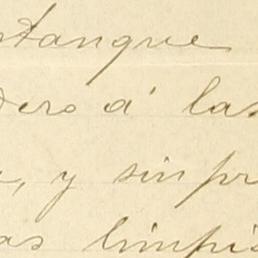 estanque
dero á las
, y sin pr
as limpi